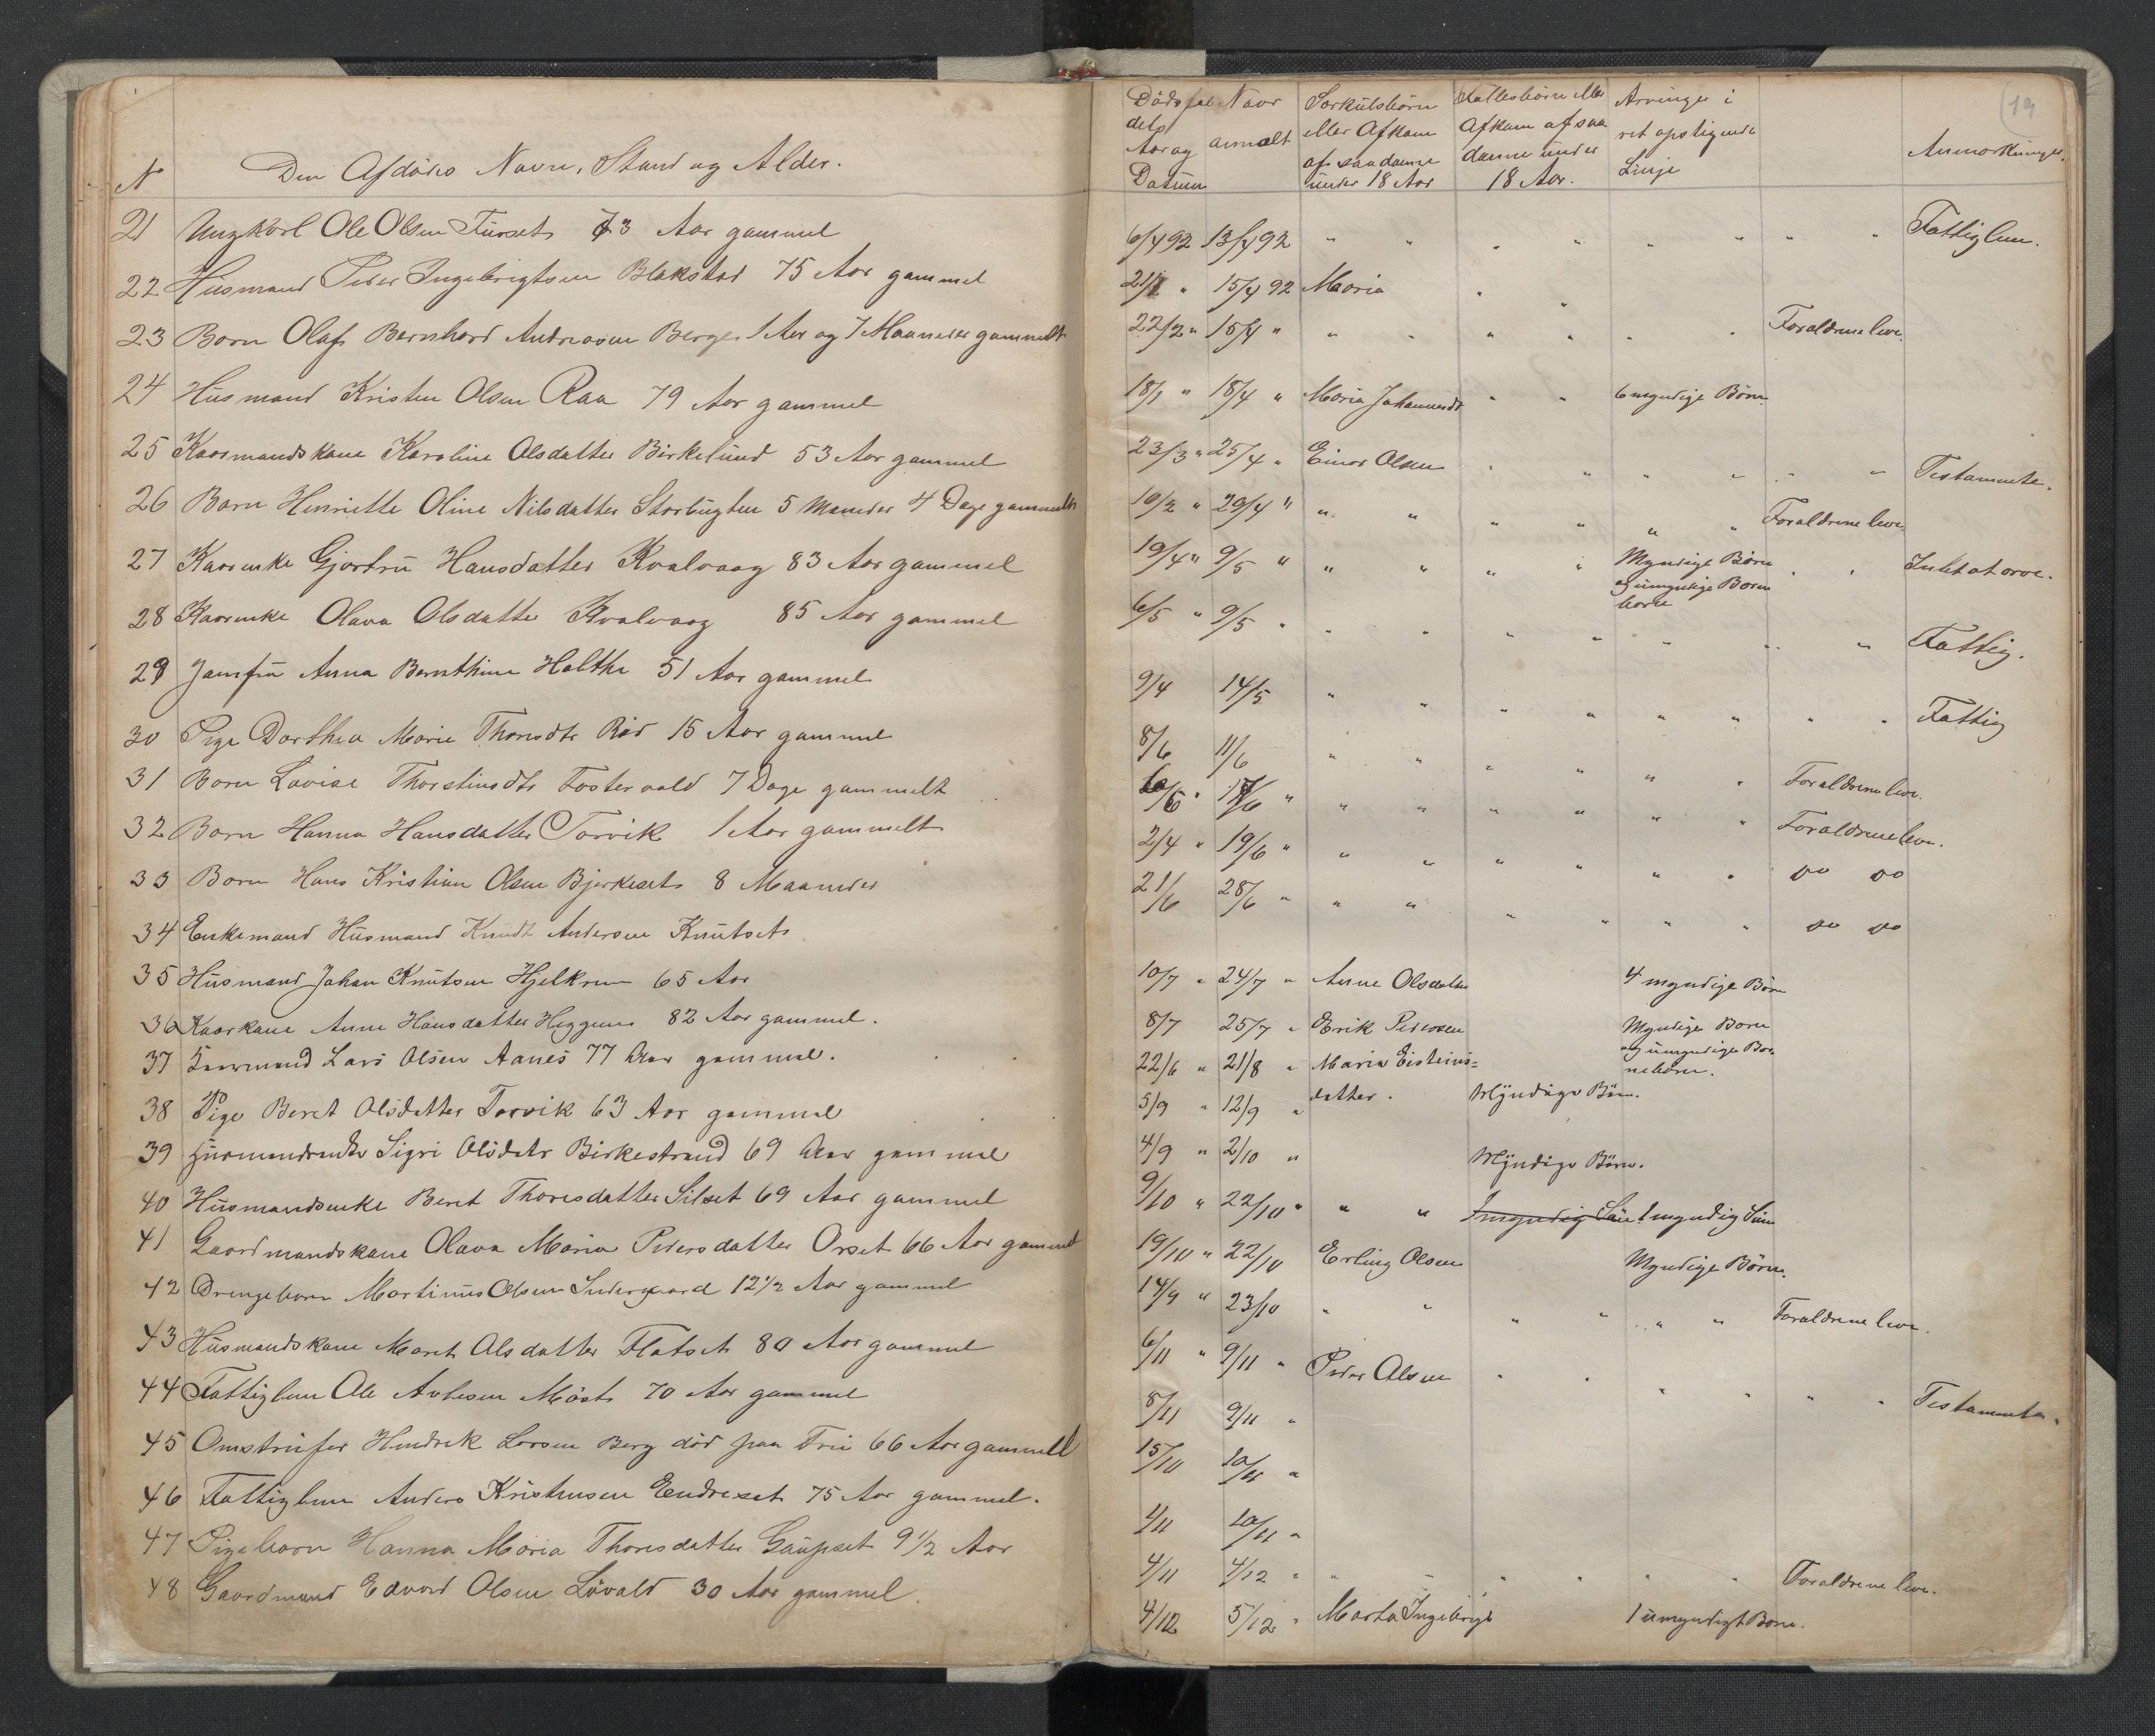 No Den Afdödes Navn, Stand og Alder.
21 Ungkarl Ole Olsen Furset 73 Aar gammel
22 Husmand Peder Ingebrigtsen Blakstad 75 Aar gammel
23 Barn Olaf Bernhard Andreasen Berge 1 Aar og 7 Maaneder gammelt
24 Husmand Kristen Olsen Raa 79 Aar gammel
25 Kaarmandskone Karoline Olsdatter Birkelund 53 Aar gammel
26 Barn Henriette Oline Nilsdatter Storbugten 5 Maneder 4 Dage gammelt
27 Kaarenke Gjertru Hansdatter Kvalvaag 83 Aar gammel
28 Kaarenke Olava Olsdatter Kvalvaag 85 Aar gammel
29 Jomfru Anna Bernthine Holthe 51 Aar gammel
30 Pige Dorthea Marie Thoresdtr Rød 15 Aar gammel
31 Barn Lovise Thorstinsdtr Fostervold 7 Dage gammelt
32 Barn Hanna Hansdatter Torvik 1 Aar gammelt
33 Barn Hans Kristian Olsen Bjerkeset 8 Maaneder
34 Enkemand Husmand Knudt Andersen Knutset
35 Husmand Johan Knutsen Hjelkrem 65 Aar
36 Kaarkone Anne Hansdatter Heggem 82 Aar gammel.
37 Kaarmand Lars Olsen Aanes 77 Aar gammel.
38 Pige Beret Olsdatter Torvik 63 Aar gammel
39 Husmandsenke Sigri Olsdatr Birkestrand 69 Aar gammel
40 Husmandsenke Beret Thoresdatter Silset 69 Aar gammel
41 Gaardmandskone Olava Maria Pedersdatter Orset 66 Aar gammel
42 Drengebarn Martinus Olsen Indergaard 12½ Aar gammel
43 Husmandskone Maret Olsdatter Flatset 80 Aar gammel
44 Fattiglem Ole Asleson Möst 70 Aar gammel
45 Omstreifer Hendrik Larsen Berg död paa Frei 66 Aar gammell
46 Fattiglem Anders Kristensen Endreset 75 Aar gammel.
47 Pigebarn Hanna Maria Thoresdatter Gaupset 9½ Aar
48 Gaardmand Edvard Olsen Lövold 30 Aar gammel.
19
Dödsfaldets Aar og Datum
Naar anmeldt
Særkulsbörn eller Afkom af saadanne under 18 Aar
Fællesbörn eller Afkom af saadanne under 18 Aar.
Arvinger i ret opstigende Linje
Anmærkninger.
6/4 92 13/4 92 " " " " " " " " Fattiglem.
21/1 " 15/4 92 Maria " "
22/2 " 15/4 " " " " " " " Forældrene leve.
18/1 " 18/4 " Maria Johannesdt " " 6 myndige Börn
23/3 " 25/4 " Einar Olsen " " " " " " Testamente.
16/2 " 29/4 " " " " " " " Forældrene leve
19/4 " 9/5 " " " " " Myndige Börn og umyndige Børnebörn " " Intet at arve.
6/5 " 9/5 " " " " " " " " Fattig.
9/4 14/5 " " " " " " " " Fattig
8/6 11/6 " " " " " " Forældrene leve.
6/6 " 17/6 " " " " " " " Forældrene leve.
2/4 " 19/6 " " " " " " " do do
21/6 28/6 " " " " " " " do do
10/7 " 24/7 " Anne Olsdatter 4 myndige Börn
8/7 25/7 " Erik Pedersen Myndige Börn og umyndige Børnebörn.
22/6 " 21/8 " Maria Eisteins=datter. Myndige Börn.
5/9 " 12/9 "
4/9 " 2/10 " Myndige Börn.
9/10 " 22/10 " " " 1 myndig Sön 1 myndig Sön
19/10 " 22/10 Erling Olsen Myndige Börn.
14/9 " 23/10 " " " " " " Forældrene leve.
6/11 " 9/11 " Peder Olsen " " " " " " Testamente.
8/11 9/11 "
15/10 10/11 "
1/11 10/11 "
4/11 4/12 " " " " " " " Forældrene leve.
4/12 5/12 " Marta Ingebrigt 1 umyndigt Barn.